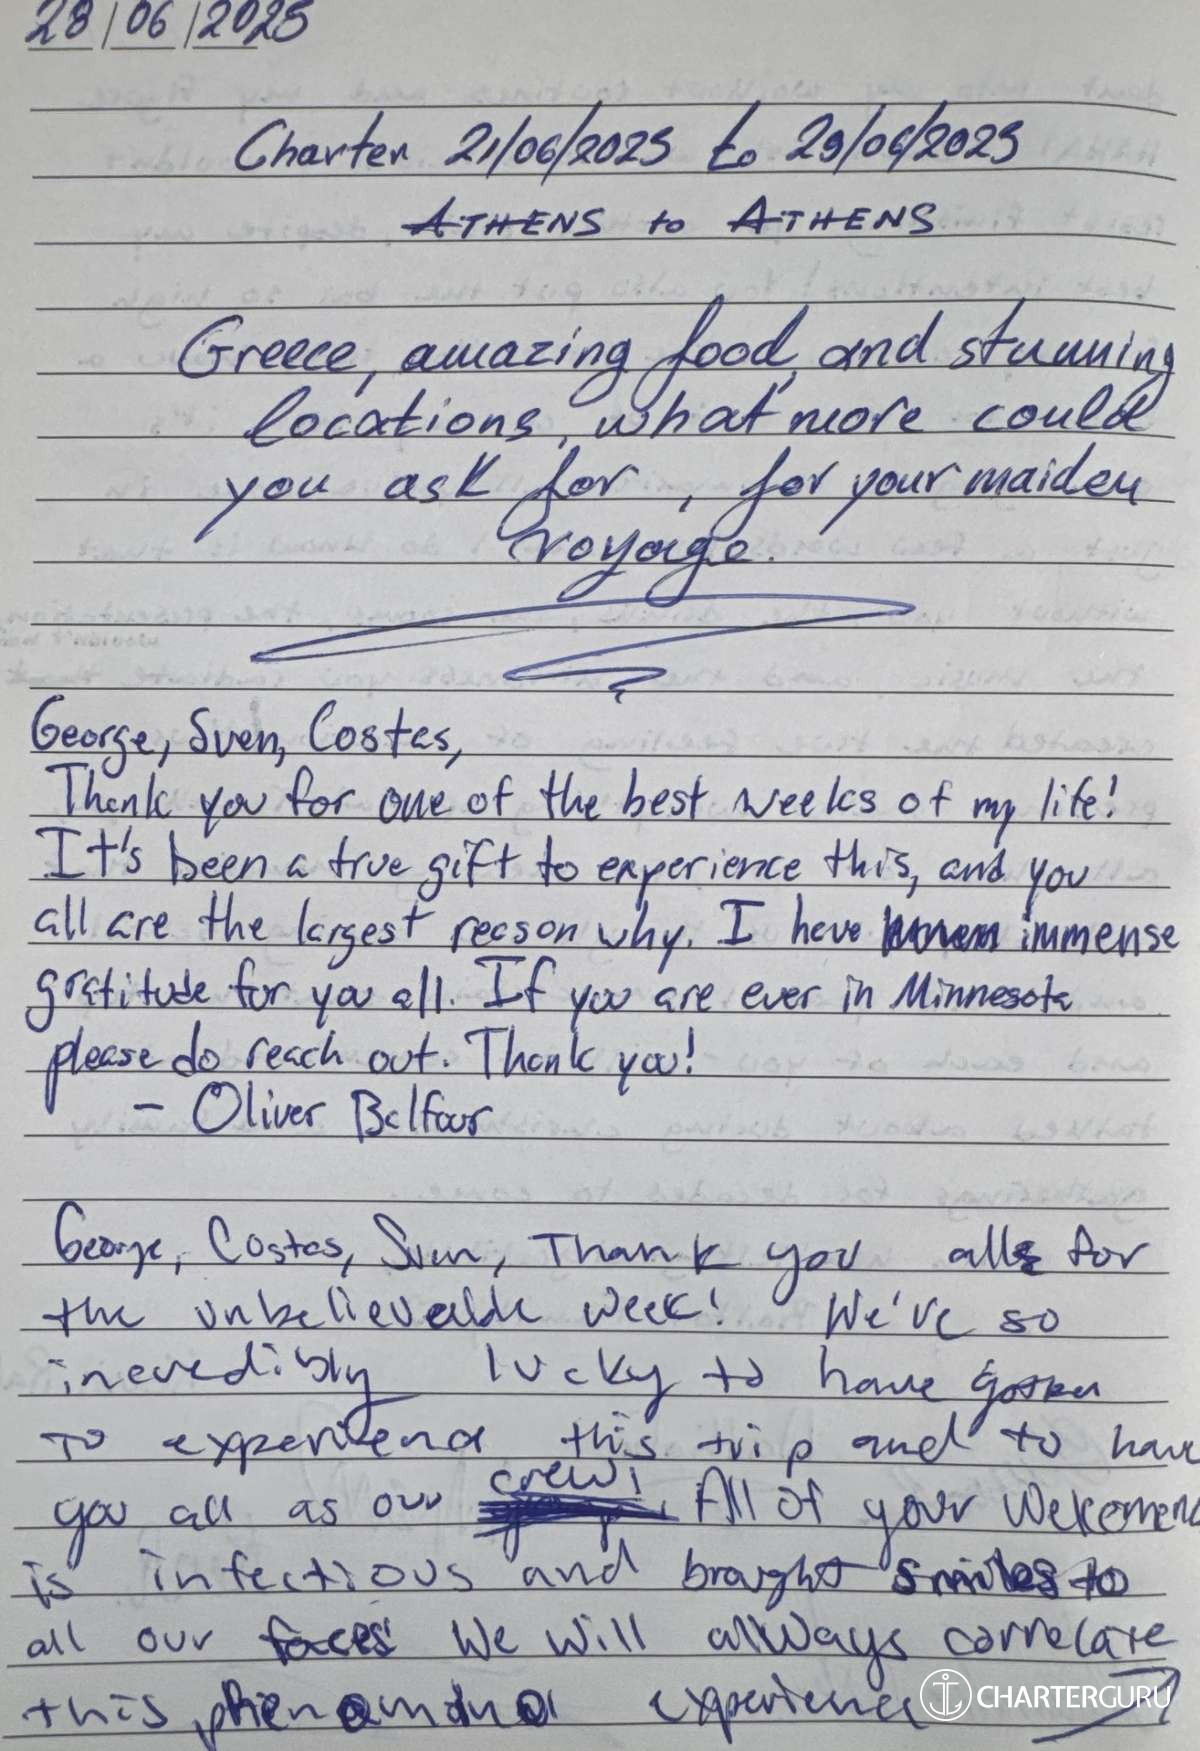 28/06/2025
Charter 21/06/2025 to 29/06/2025
ATHENS to ATHENS
Greece, amazing food, and stunning
locations, what more could
you ask for, for your maiden
voyage.
George, Sven, Costas,
Thank you for one of the best weeks of my life!
It's been a true gift to experience this, and you
all are the largest reason why. I have immense
gratitude for you all. If you are ever in Minnesota
please do reach out. Thank you!
- Oliver Balfour
George, Costas, Sven, Thank you all for
the unbelievable week! We've so
incredibly lucky to have gotten
to experience this trip and to have
you all as our crew! All of your
is infectious and brought smiles to
all our faces! We will allways correlate
this experience
CHARTERGURU